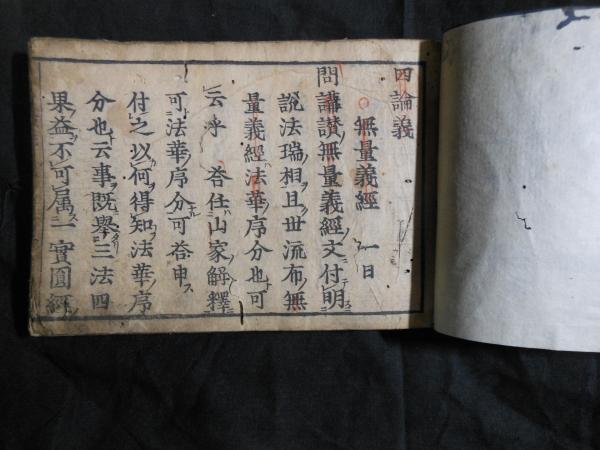 四論義
無量義經 一日
問講讃無量義經文付明
説法瑞相且世流布無
量義經法華序分也可
云乎 答任山家解釋
可法華序分可答申
付之以何得知法華序
分也云事既舉三法四
果益不可属一實圓經